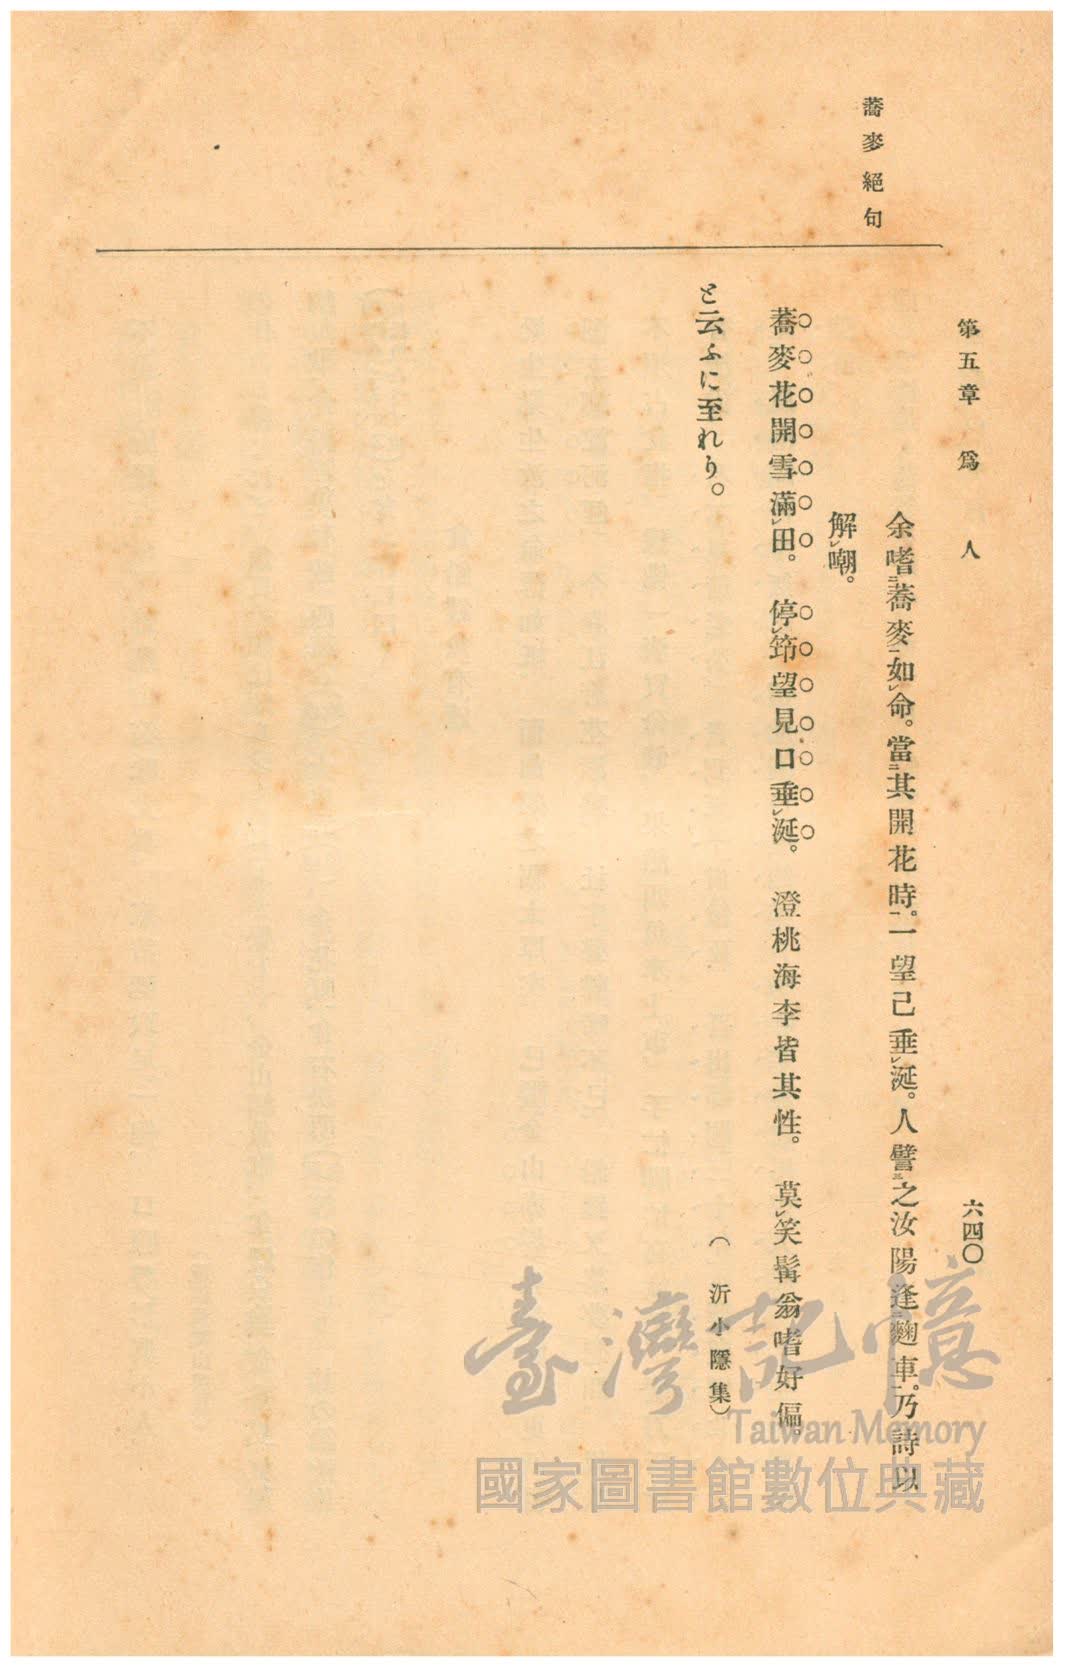 蕎麥絕句
第五章 爲人
六四〇
余嗜二蕎麥一如レ命。當二其開花時一。一望已垂レ涎。人譬三之汝陽逢二麴車一。乃詩以
解レ嘲。
蕎麥花開雪滿レ田。停レ筇望見口垂レ涎。澄桃海李皆其性。莫レ笑髯翁嗜好偏。
と云ふに至れり。
(沂小隱集)
臺灣記憶
Taiwan Memory
國家圖書館數位典藏